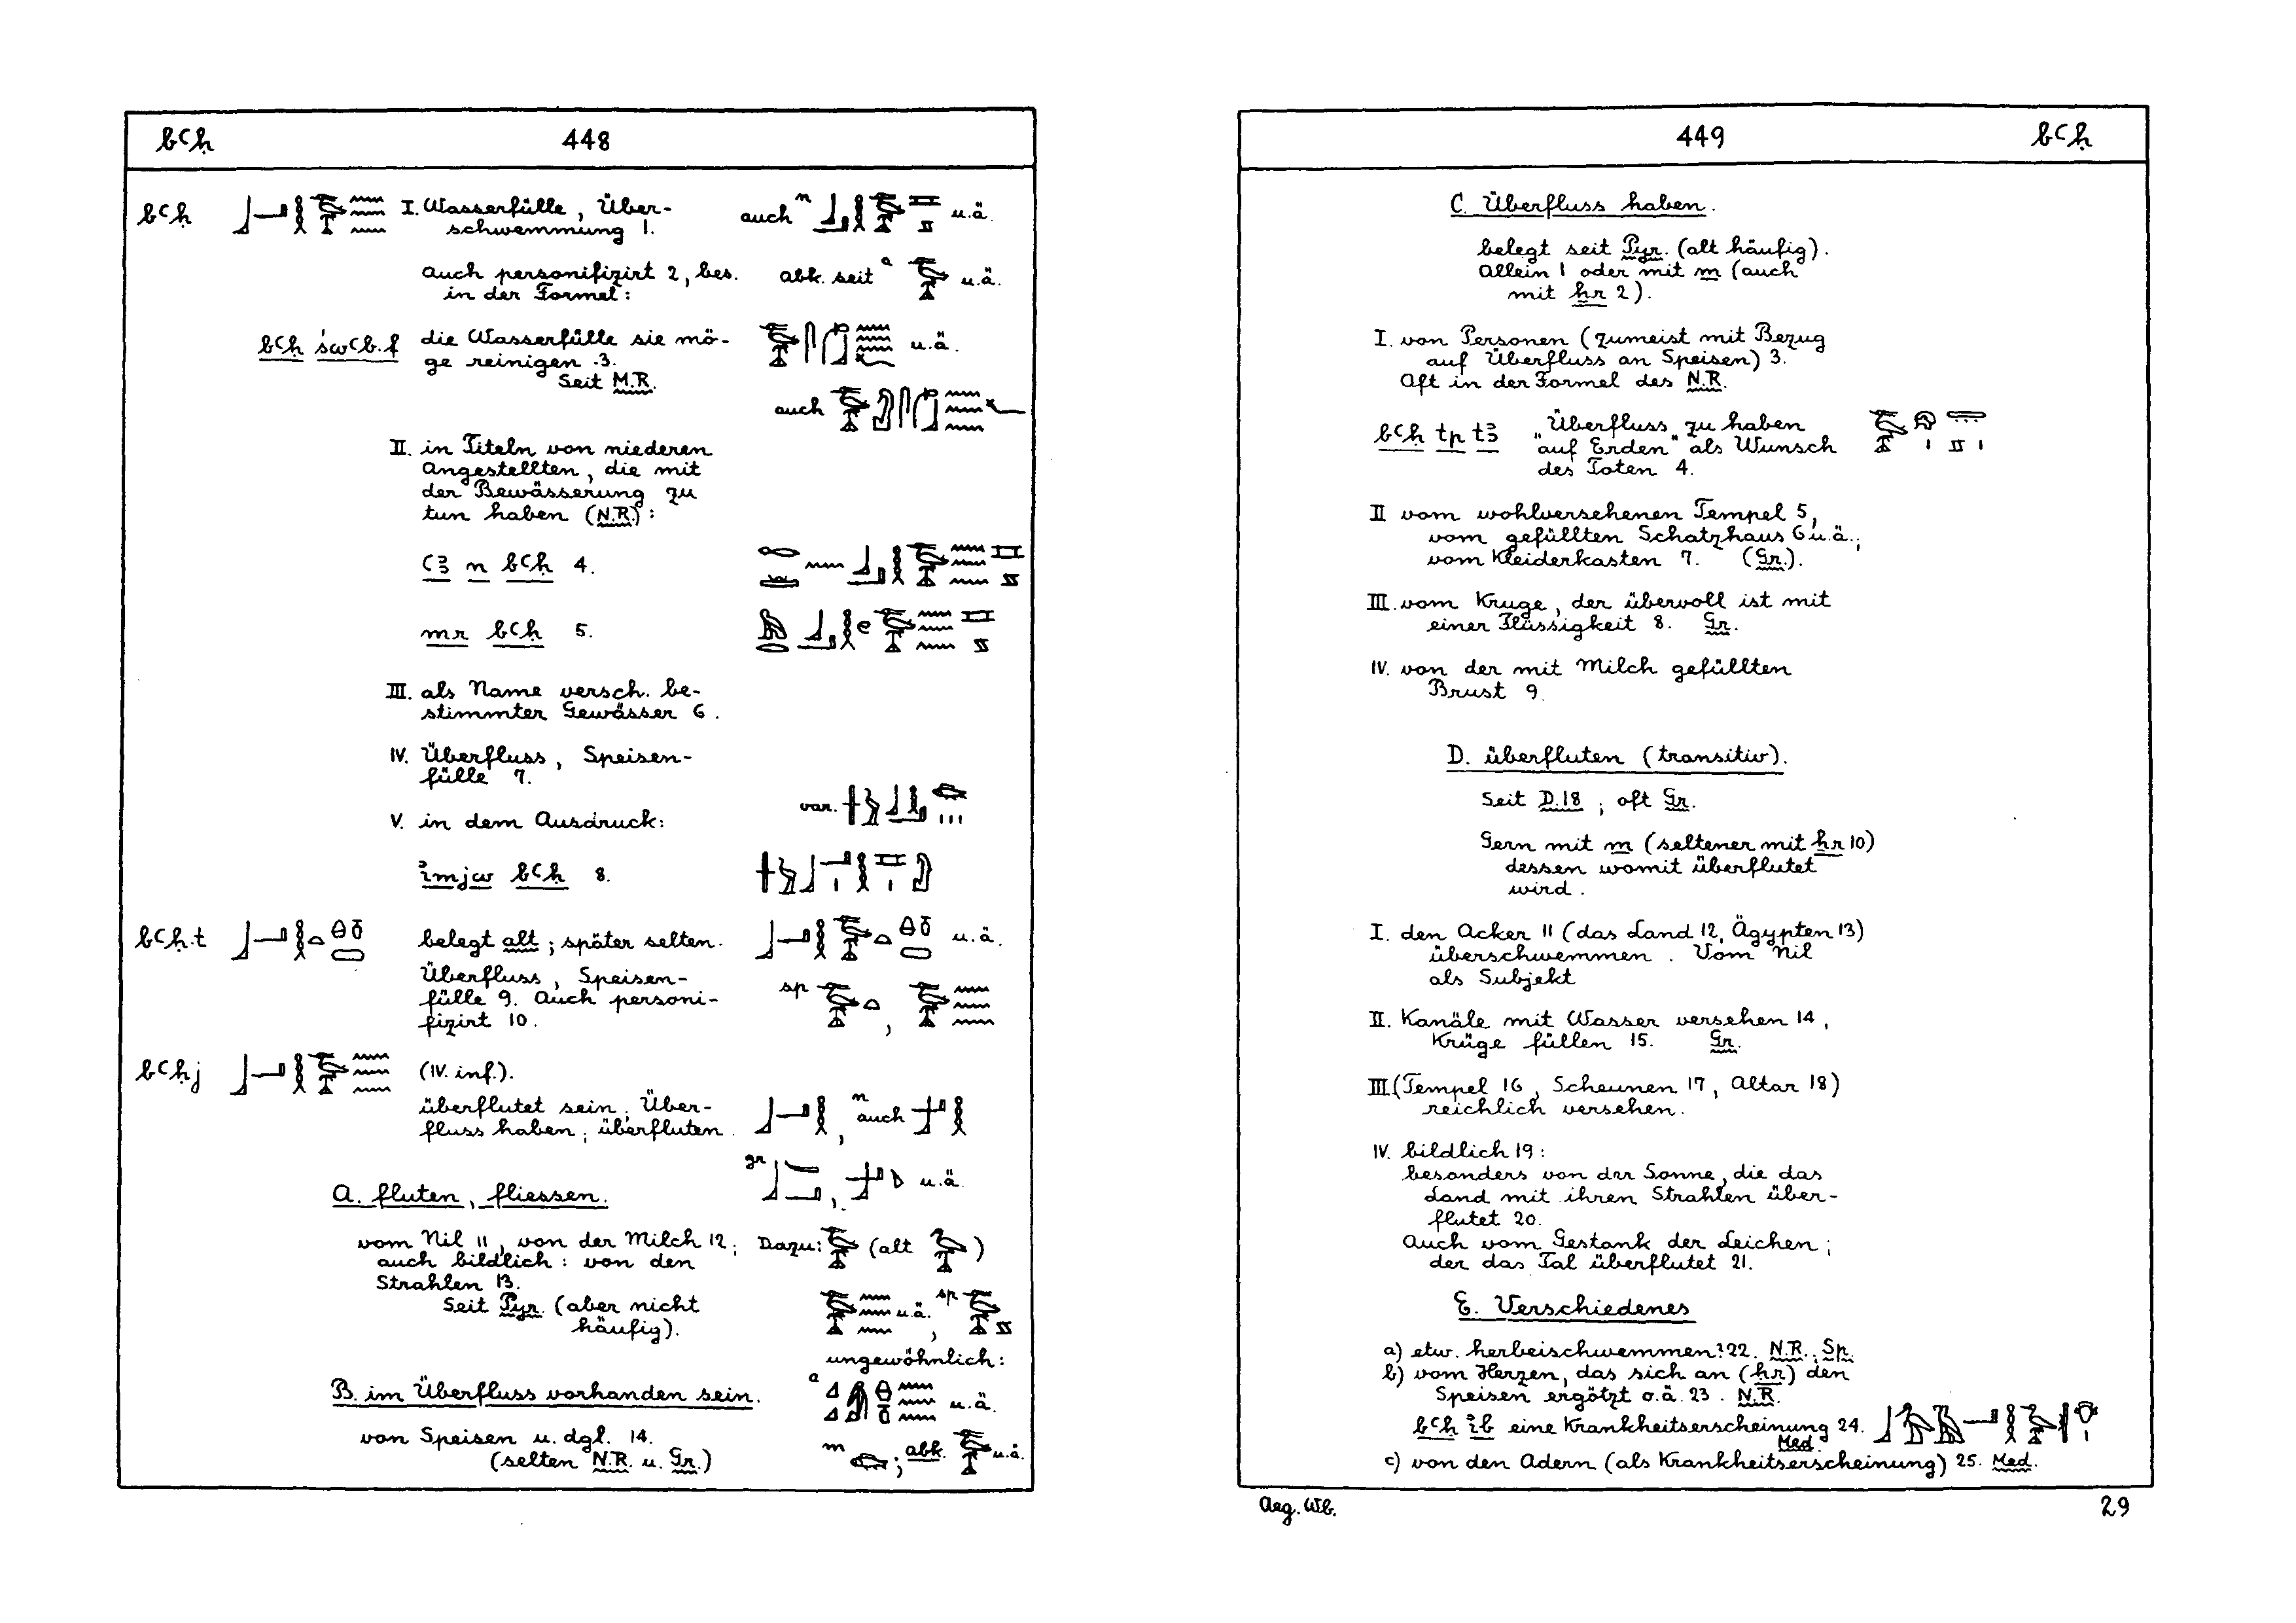 bꜥḥ 448
bꜥḥ I. Wasserfülle, Über- auch n u.ä.
schwemmung 1.
auch personifizirt 2, bes. abk. seit a u.ä.
in der Formel:
bꜥḥ śwꜥb.f die Wasserfülle sie mö- u.ä.
ge reinigen 3.
Seit M.R.
auch
II. in Titeln von niederen
Angestellten, die mit
der Bewässerung zu
tun haben (N.R.):
ꜥꜣ n bꜥḥ 4.
mr bꜥḥ 5.
III. als Name versch. be-
stimmter Gewässer 6.
IV. Überfluss, Speisen-
fülle 7.
var.
V. in dem Ausdruck:
ı͗mjw bꜥḥ 8.
bꜥḥ.t belegt alt; später selten. u.ä.
Überfluss, Speisen-
fülle 9. Auch personi- sp ,
fizirt 10.
bꜥḥj (IV. inf.).
überflutet sein; Über- , n auch
fluss haben; überfluten.
gr , u.ä.
A. fluten, fliessen.
vom Nil 11, von der Milch 12; Dazu: (alt )
auch bildlich: von den
Strahlen 13.
Seit Pyr. (aber nicht u.ä. , sp
häufig).
ungewöhnlich:
B. im Überfluss vorhanden sein. a u.ä.
von Speisen u. dgl. 14.
(selten N.R. u. Gr.) m ; abk. u.ä.
449 bꜥḥ
C. Überfluss haben.
belegt seit Pyr. (alt häufig).
Allein 1 oder mit m (auch
mit ḥr 2).
I. von Personen (zumeist mit Bezug
auf Überfluss an Speisen) 3.
Oft in der Formel des N.R.
bꜥḥ tp tꜣ "Überfluss zu haben
auf Erden" als Wunsch
des Toten 4.
II vom wohlversehenen Tempel 5,
vom gefüllten Schatzhaus 6 u.ä.;
vom Kleiderkasten 7. (Gr.).
III. vom Kruge, der übervoll ist mit
einer Flüssigkeit 8. Gr.
IV. von der mit Milch gefüllten
Brust 9.
D. überfluten (transitiv).
Seit D.18; oft Gr.
Gern mit m (seltener mit ḥr 10)
dessen womit überflutet
wird.
I. den Acker 11 (das Land 12, Ägypten 13)
überschwemmen. Vom Nil
als Subjekt
II. Kanäle mit Wasser versehen 14,
Krüge füllen 15. Gr.
III. (Tempel 16, Scheunen 17, Altar 18)
reichlich versehen.
IV. bildlich 19:
besonders von der Sonne, die das
Land mit ihren Strahlen über-
flutet 20.
Auch vom Gestank der Leichen;
der das Tal überflutet 21.
E. Verschiedenes
a) etw. herbeischwemmen? 22. N.R.; Sp.
b) vom Herzen, das sich an (ḥr) den
Speisen ergötzt o.ä. 23. N.R.
bꜥḥ ı͗b eine Krankheitserscheinung 24.
Med.
c) von den Adern (als Krankheitserscheinung) 25. Med.
Aeg. Wb. 29